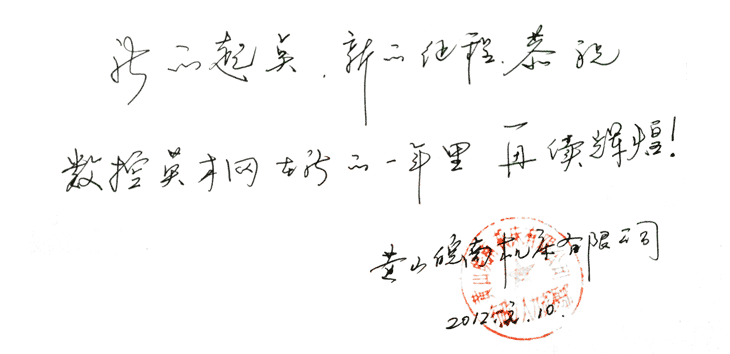 新的起点,新的征程,恭祝
数控英才网在新的一年里 再续辉煌!
黄山皖南机床有限公司
2012.2.10.